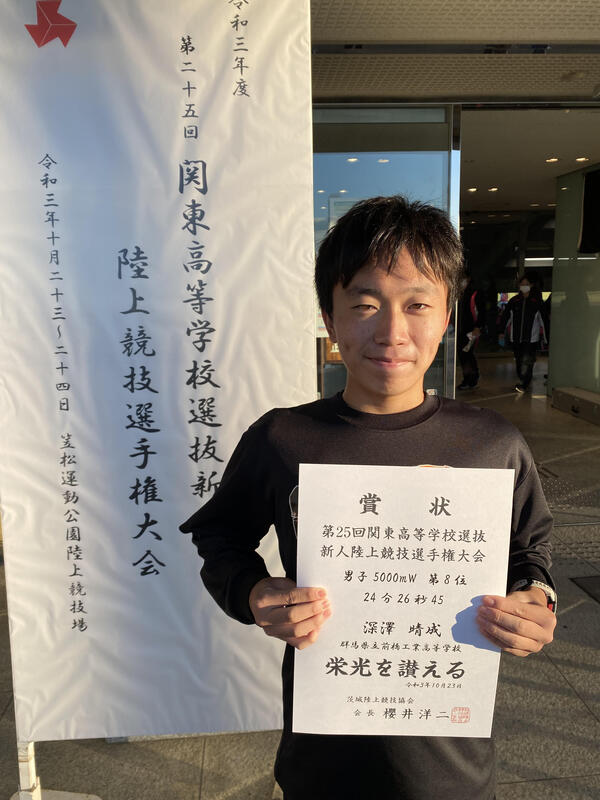 令和三年度
第二十五回
関東高等学校選抜新
陸上競技選手権大会
令和三年十月二十三~二十四日 笠松運動公園陸上競技場
賞 状
第25回関東高等学校選抜
新人陸上競技選手権大会
男子 5000mW 第8位
24分26秒45
深澤 晴成
群馬県立前橋工業高等学校
栄光を讃える
令和3年10月23日
茨城陸上競技協会
会長 櫻井洋二